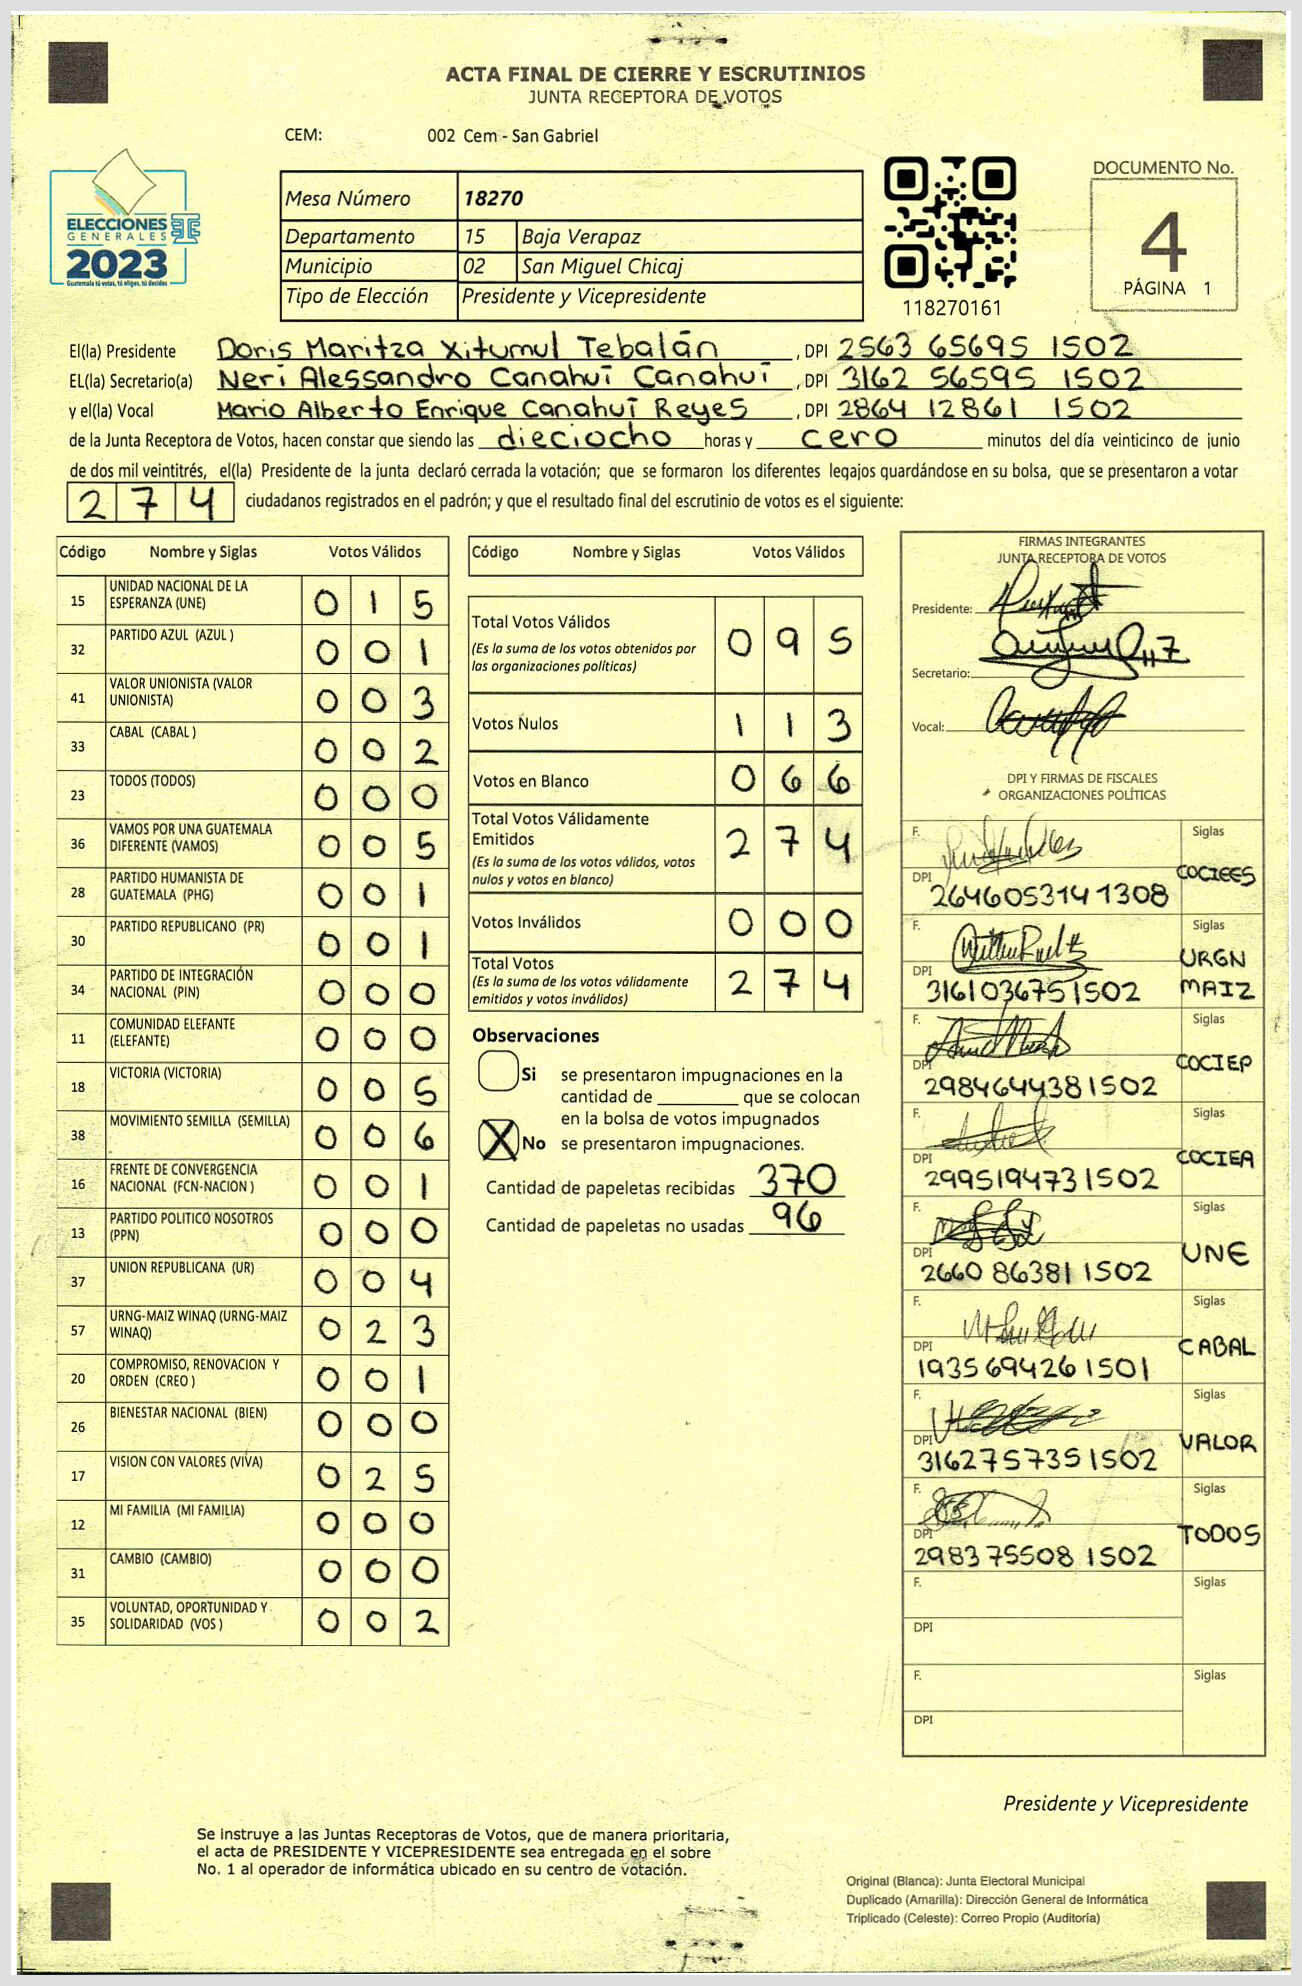 ACTA FINAL DE CIERRE Y ESCRUTINIOS
JUNTA RECEPTORA DE VOTOS
CEM: 002 Cem - San Gabriel
ELECCIONES
GENERALES
2023
Guatemala tú votas, tú eliges, tú decides
Mesa Número 18270
Departamento 15 Baja Verapaz
Municipio 02 San Miguel Chicaj
Tipo de Elección Presidente y Vicepresidente
118270161
DOCUMENTO No.
4
PÁGINA 1
El(la) Presidente Doris Maritza Xitumul Tebalán , DPI 2563 65695 1502
EL(la) Secretario(a) Neri Alessandro Canahuí Canahuí , DPI 3162 56595 1502
y el(la) Vocal Mario Alberto Enrique Canahuí Reyes , DPI 2864 12861 1502
de la Junta Receptora de Votos, hacen constar que siendo las dieciocho horas y cero minutos del día veinticinco de junio
de dos mil veintitrés, el(la) Presidente de la junta declaró cerrada la votación; que se formaron los diferentes legajos quardándose en su bolsa, que se presentaron a votar
274 ciudadanos registrados en el padrón; y que el resultado final del escrutinio de votos es el siguiente:
Código Nombre y Siglas Votos Válidos
15 UNIDAD NACIONAL DE LA ESPERANZA (UNE) 015
32 PARTIDO AZUL (AZUL ) 001
41 VALOR UNIONISTA (VALOR UNIONISTA) 003
33 CABAL (CABAL ) 002
23 TODOS (TODOS) 000
36 VAMOS POR UNA GUATEMALA DIFERENTE (VAMOS) 005
28 PARTIDO HUMANISTA DE GUATEMALA (PHG) 001
30 PARTIDO REPUBLICANO (PR) 001
34 PARTIDO DE INTEGRACIÓN NACIONAL (PIN) 000
11 COMUNIDAD ELEFANTE (ELEFANTE) 000
18 VICTORIA (VICTORIA) 005
38 MOVIMIENTO SEMILLA (SEMILLA) 006
16 FRENTE DE CONVERGENCIA NACIONAL (FCN-NACION ) 001
13 PARTIDO POLITICO NOSOTROS (PPN) 000
37 UNION REPUBLICANA (UR) 004
57 URNG-MAIZ WINAQ (URNG-MAIZ WINAQ) 023
20 COMPROMISO, RENOVACION Y ORDEN (CREO ) 001
26 BIENESTAR NACIONAL (BIEN) 000
17 VISION CON VALORES (VIVA) 025
12 MI FAMILIA (MI FAMILIA) 000
31 CAMBIO (CAMBIO) 000
35 VOLUNTAD, OPORTUNIDAD Y SOLIDARIDAD (VOS ) 002
Código Nombre y Siglas Votos Válidos
Total Votos Válidos 095
(Es la suma de los votos obtenidos por
las organizaciones políticas)
Votos Nulos 113
Votos en Blanco 066
Total Votos Válidamente
Emitidos 274
(Es la suma de los votos válidos, votos
nulos y votos en blanco)
Votos Inválidos 000
Total Votos 274
(Es la suma de los votos válidamente
emitidos y votos inválidos)
Observaciones
Si se presentaron impugnaciones en la
cantidad de ________ que se colocan
en la bolsa de votos impugnados
X No se presentaron impugnaciones.
Cantidad de papeletas recibidas 370
Cantidad de papeletas no usadas 96
FIRMAS INTEGRANTES
JUNTA RECEPTORA DE VOTOS
Presidente:
Secretario:
Vocal:
DPI Y FIRMAS DE FISCALES
ORGANIZACIONES POLÍTICAS
F. Siglas
DPI 2646053141308 COCIEES
F. Siglas
DPI 3161036751502 URGN MAIZ
F. Siglas
DPI 2984644381502 COCIEP
F. Siglas
DPI 2995194731502 COCIEA
F. Siglas
DPI 2660 86381 1502 UNE
F. Siglas
DPI 1935694261501 CABAL
F. Siglas
DPI 3162757351502 VALOR
F. Siglas
DPI 298375508 1502 TODOS
F. Siglas
DPI
F. Siglas
DPI
Presidente y Vicepresidente
Se instruye a las Juntas Receptoras de Votos, que de manera prioritaria,
el acta de PRESIDENTE Y VICEPRESIDENTE sea entregada en el sobre
No. 1 al operador de informática ubicado en su centro de votación.
Original (Blanca): Junta Electoral Municipal
Duplicado (Amarilla): Dirección General de Informática
Triplicado (Celeste): Correo Propio (Auditoría)